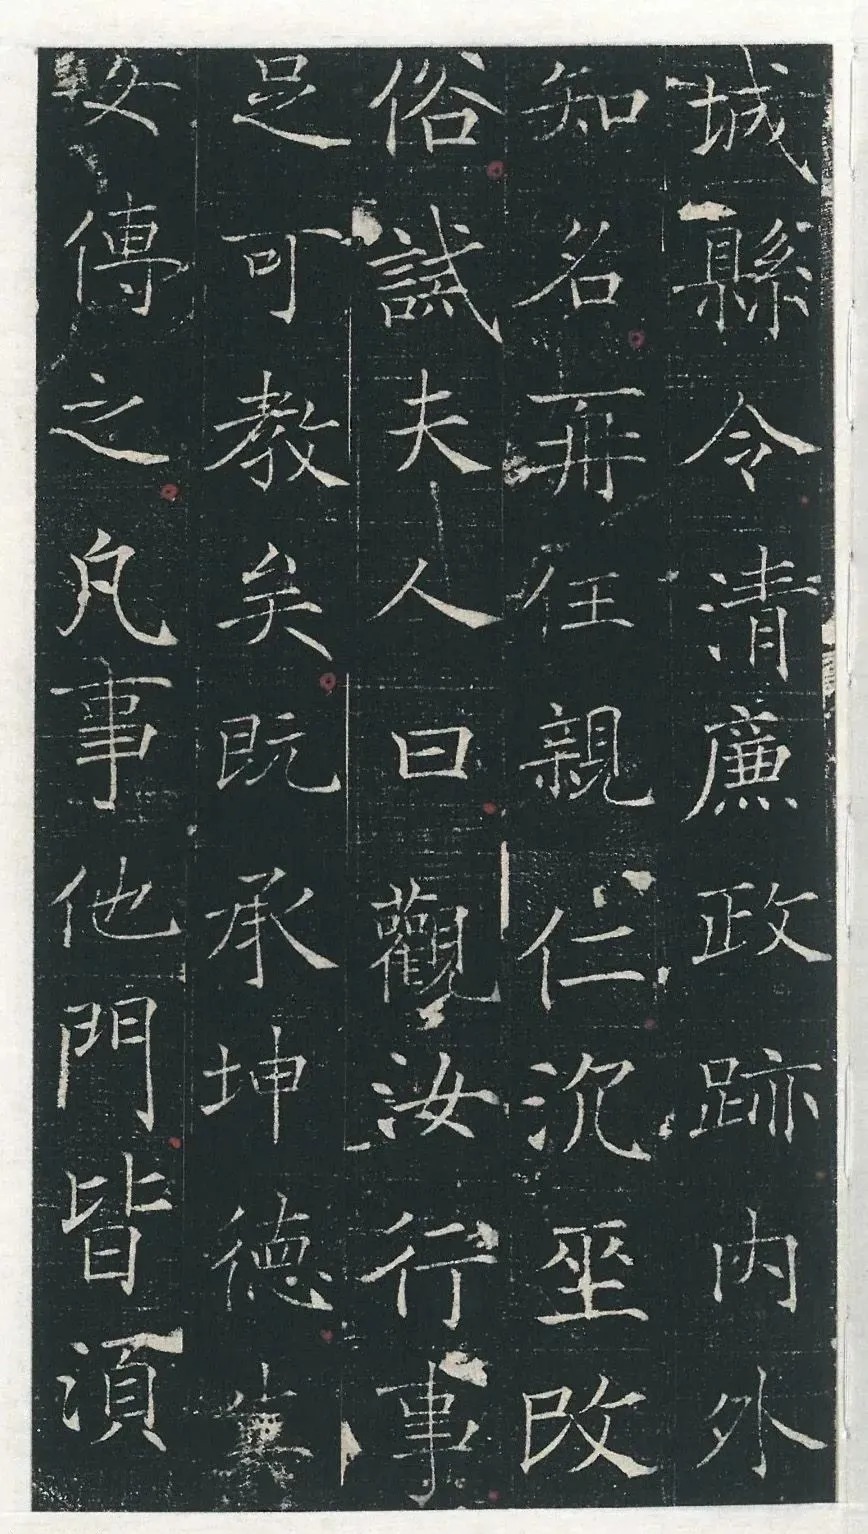 城縣令清廉政跡内外
知名再任親仁沉坐改
俗試夫人曰觀汝行事
足可教矣既承坤德
傳之凡事他門皆須